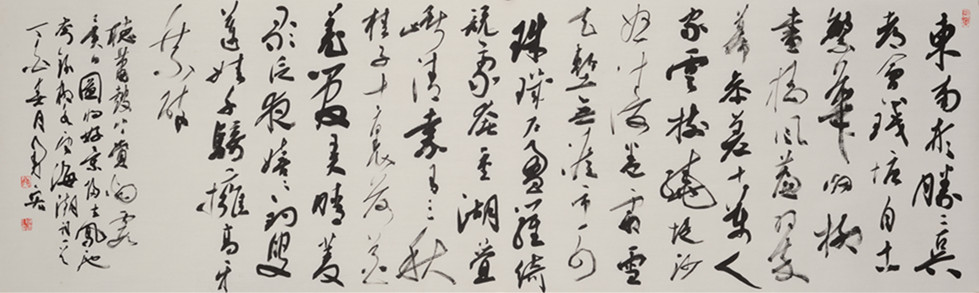 東南形勝三吳
都會錢塘自古
繁華煙柳
畫橋風簾翠
幕參差十萬人
家雲樹繞堤沙
怒濤卷霜雪
天塹無涯市列
珠璣戶盈羅綺
競豪奢重湖疊
巘清嘉有三秋
桂子十里荷花
羌管弄晴菱
歌泛夜嬉嬉釣叟
蓮娃千騎擁高牙
乘醉
聽簫鼓吟賞煙霞
異日圖將好景歸去鳳池
夸錄柳永望海潮詞一首
丁酉春月